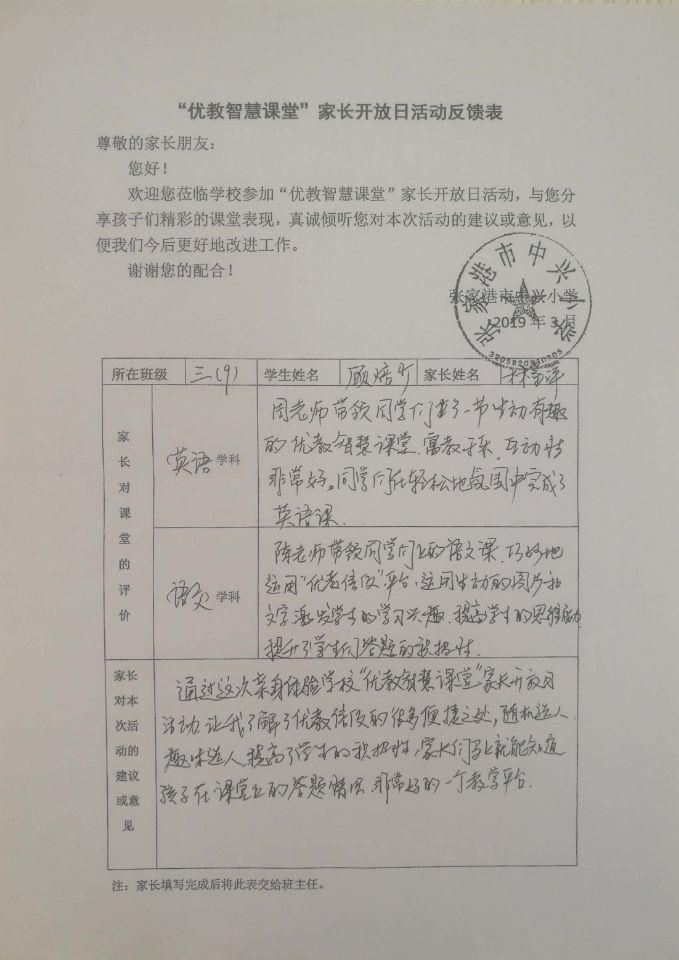 “优教智慧课堂”家长开放日活动反馈表
尊敬的家长朋友：
您好！
欢迎您莅临学校参加“优教智慧课堂”家长开放日活动，与您分
享孩子们精彩的课堂表现，真诚倾听您对本次活动的建议或意见，以
便我们今后更好地改进工作。
谢谢您的配合！
张家港市中兴小学
张家港市中兴小学
2019 年 3 月
所在班级 三(9) 学生姓名 顾焙 家长姓名 林
家长对课堂的评价
英语 学科
周老师带领同学们上了一节生动有趣
的优教智慧课堂，寓教于乐，互动性
非常好。同学们在轻松地氛围中完成了
英语课．
语文 学科
陈老师带领同学们上的语文课，巧妙地
运用“优教信使”平台，运用生动的图片和
文字激发学生的学习兴趣，提高学生的思维能力
提升了学生们答题的积极性．
家长对本次活动的建议或意见
通过这次亲身体验学校“优教智慧课堂”家长开放日
活动，让我了解了优教信使的很多便捷之处，随机选人．
趣味选人，提高了学生的积极性，家长们马上就能知道
孩子在课堂上的答题情况，非常好的一个教学平台．
注：家长填写完成后将此表交给班主任。